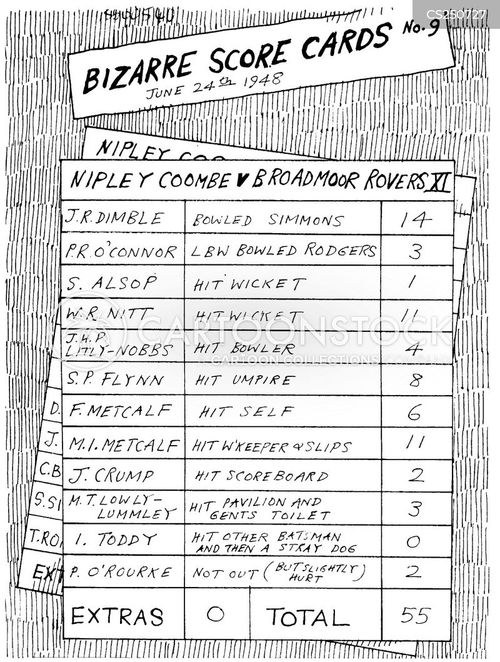 CS250727
BIZARRE SCORE CARDS No. 9
JUNE 24th 1948
NIPLEY COO
NIPLEY COOMBE V BROADMOOR ROVERS XI
J.R. DIMBLE BOWLED SIMMONS 14
P.R. O'CONNOR LBW BOWLED RODGERS 3
S. ALSOP HIT WICKET 1
W.R. NITT HIT WICKET 11
J.H.P.
LILY-NOBBS HIT BOWLER 4
CARTOONSTOCK
CARTOON COLLECTIONS
S.P. FLYNN HIT UMPIRE 8
D. F. METCALF HIT SELF 6
J. M.I. METCALF HIT W'KEEPER & SLIPS 11
C.B J. CRUMP HIT SCOREBOARD 2
S.SI M.T. LOWLY-
LUMMLEY HIT PAVILION AND
GENTS TOILET 3
T.RO I. TODDY HIT OTHER BATSMAN
AND THEN A STRAY DOG 0
EXT P. O'ROURKE NOT OUT (BUT SLIGHTLY
HURT) 2
EXTRAS 0 TOTAL 55